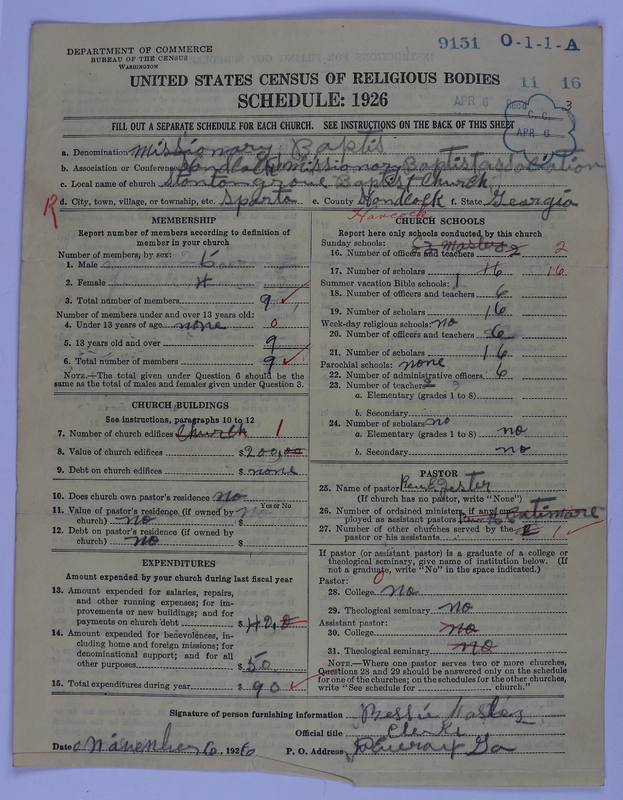 9151 O-1-1-A
DEPARTMENT OF COMMERCE
BUREAU OF THE CENSUS
WASHINGTON
11 16
UNITED STATES CENSUS OF RELIGIOUS BODIES
APR 6 Recd 3
SCHEDULE: 1926
C. C.
APR 6
FILL OUT A SEPARATE SCHEDULE FOR EACH CHURCH. SEE INSTRUCTIONS ON THE BACK OF THIS SHEET
a. Denomination Missionary Baptis
b. Association or Conference Handcock Missionary Baptist association
c. Local name of church Stanton grove Baptest Church
R d. City, town, village, or township, etc. Sparta e. County Handcock f. State Georgia
Hancock
MEMBERSHIP
Report number of members according to definition of
member in your church
Number of members, by sex:
1. Male 5
2. Female 4
3. Total number of members 9
Number of members under and over 13 years old:
4. Under 13 years of age none 0
5. 13 years old and over 9
6. Total number of members 9
NOTE.—The total given under Question 6 should be the
same as the total of males and females given under Question 3.
CHURCH BUILDINGS
See instructions, paragraphs 10 to 12
7. Number of church edifices Church 1
8. Value of church edifices $ 200,00
9. Debt on church edifices $ none
10. Does church own pastor's residence no
Yes or No
11. Value of pastor's residence (if owned by
church) no $
12. Debt on pastor's residence (if owned by
church) no $
EXPENDITURES
Amount expended by your church during last fiscal year
13. Amount expended for salaries, repairs,
and other running expenses; for im-
provements or new buildings; and for
payments on church debt $
14. Amount expended for benevolences, in-
cluding home and foreign missions; for
denominational support; and for all
other purposes $ 50
15. Total expenditures during year $ 90
CHURCH SCHOOLS
Report here only schools conducted by this church
Sunday schools:
16. Number of officers and teachers 2 2
17. Number of scholars 16 16
Summer vacation Bible schools:
18. Number of officers and teachers 6
19. Number of scholars 16
Week-day religious schools: no
20. Number of officers and teachers 6
21. Number of scholars 16
Parochial schools: none
22. Number of administrative officers 6
23. Number of teachers 2
a. Elementary (grades 1 to 8)
b. Secondary
24. Number of scholars no
a. Elementary (grades 1 to 8) no
b. Secondary no
PASTOR
25. Name of pastor
(If church has no pastor, write "None")
26. Number of ordained ministers, if any, em-
ployed as assistant pastors
27. Number of other churches served by the
pastor or his assistants 1
If pastor (or assistant pastor) is a graduate of a college or
theological seminary, give name of institution below. (If
not a graduate, write "No" in the space indicated.)
Pastor: 0
28. College no
29. Theological seminary no
Assistant pastor:
30. College no
31. Theological seminary no
NOTE.—Where one pastor serves two or more churches,
Questions 28 and 29 should be answered only on the schedule
for one of the churches; on the schedules for the other churches,
write "See schedule for church."
Signature of person furnishing information Bessie
Official title Clerk
Date 6, 1926 P. O. Address Ga